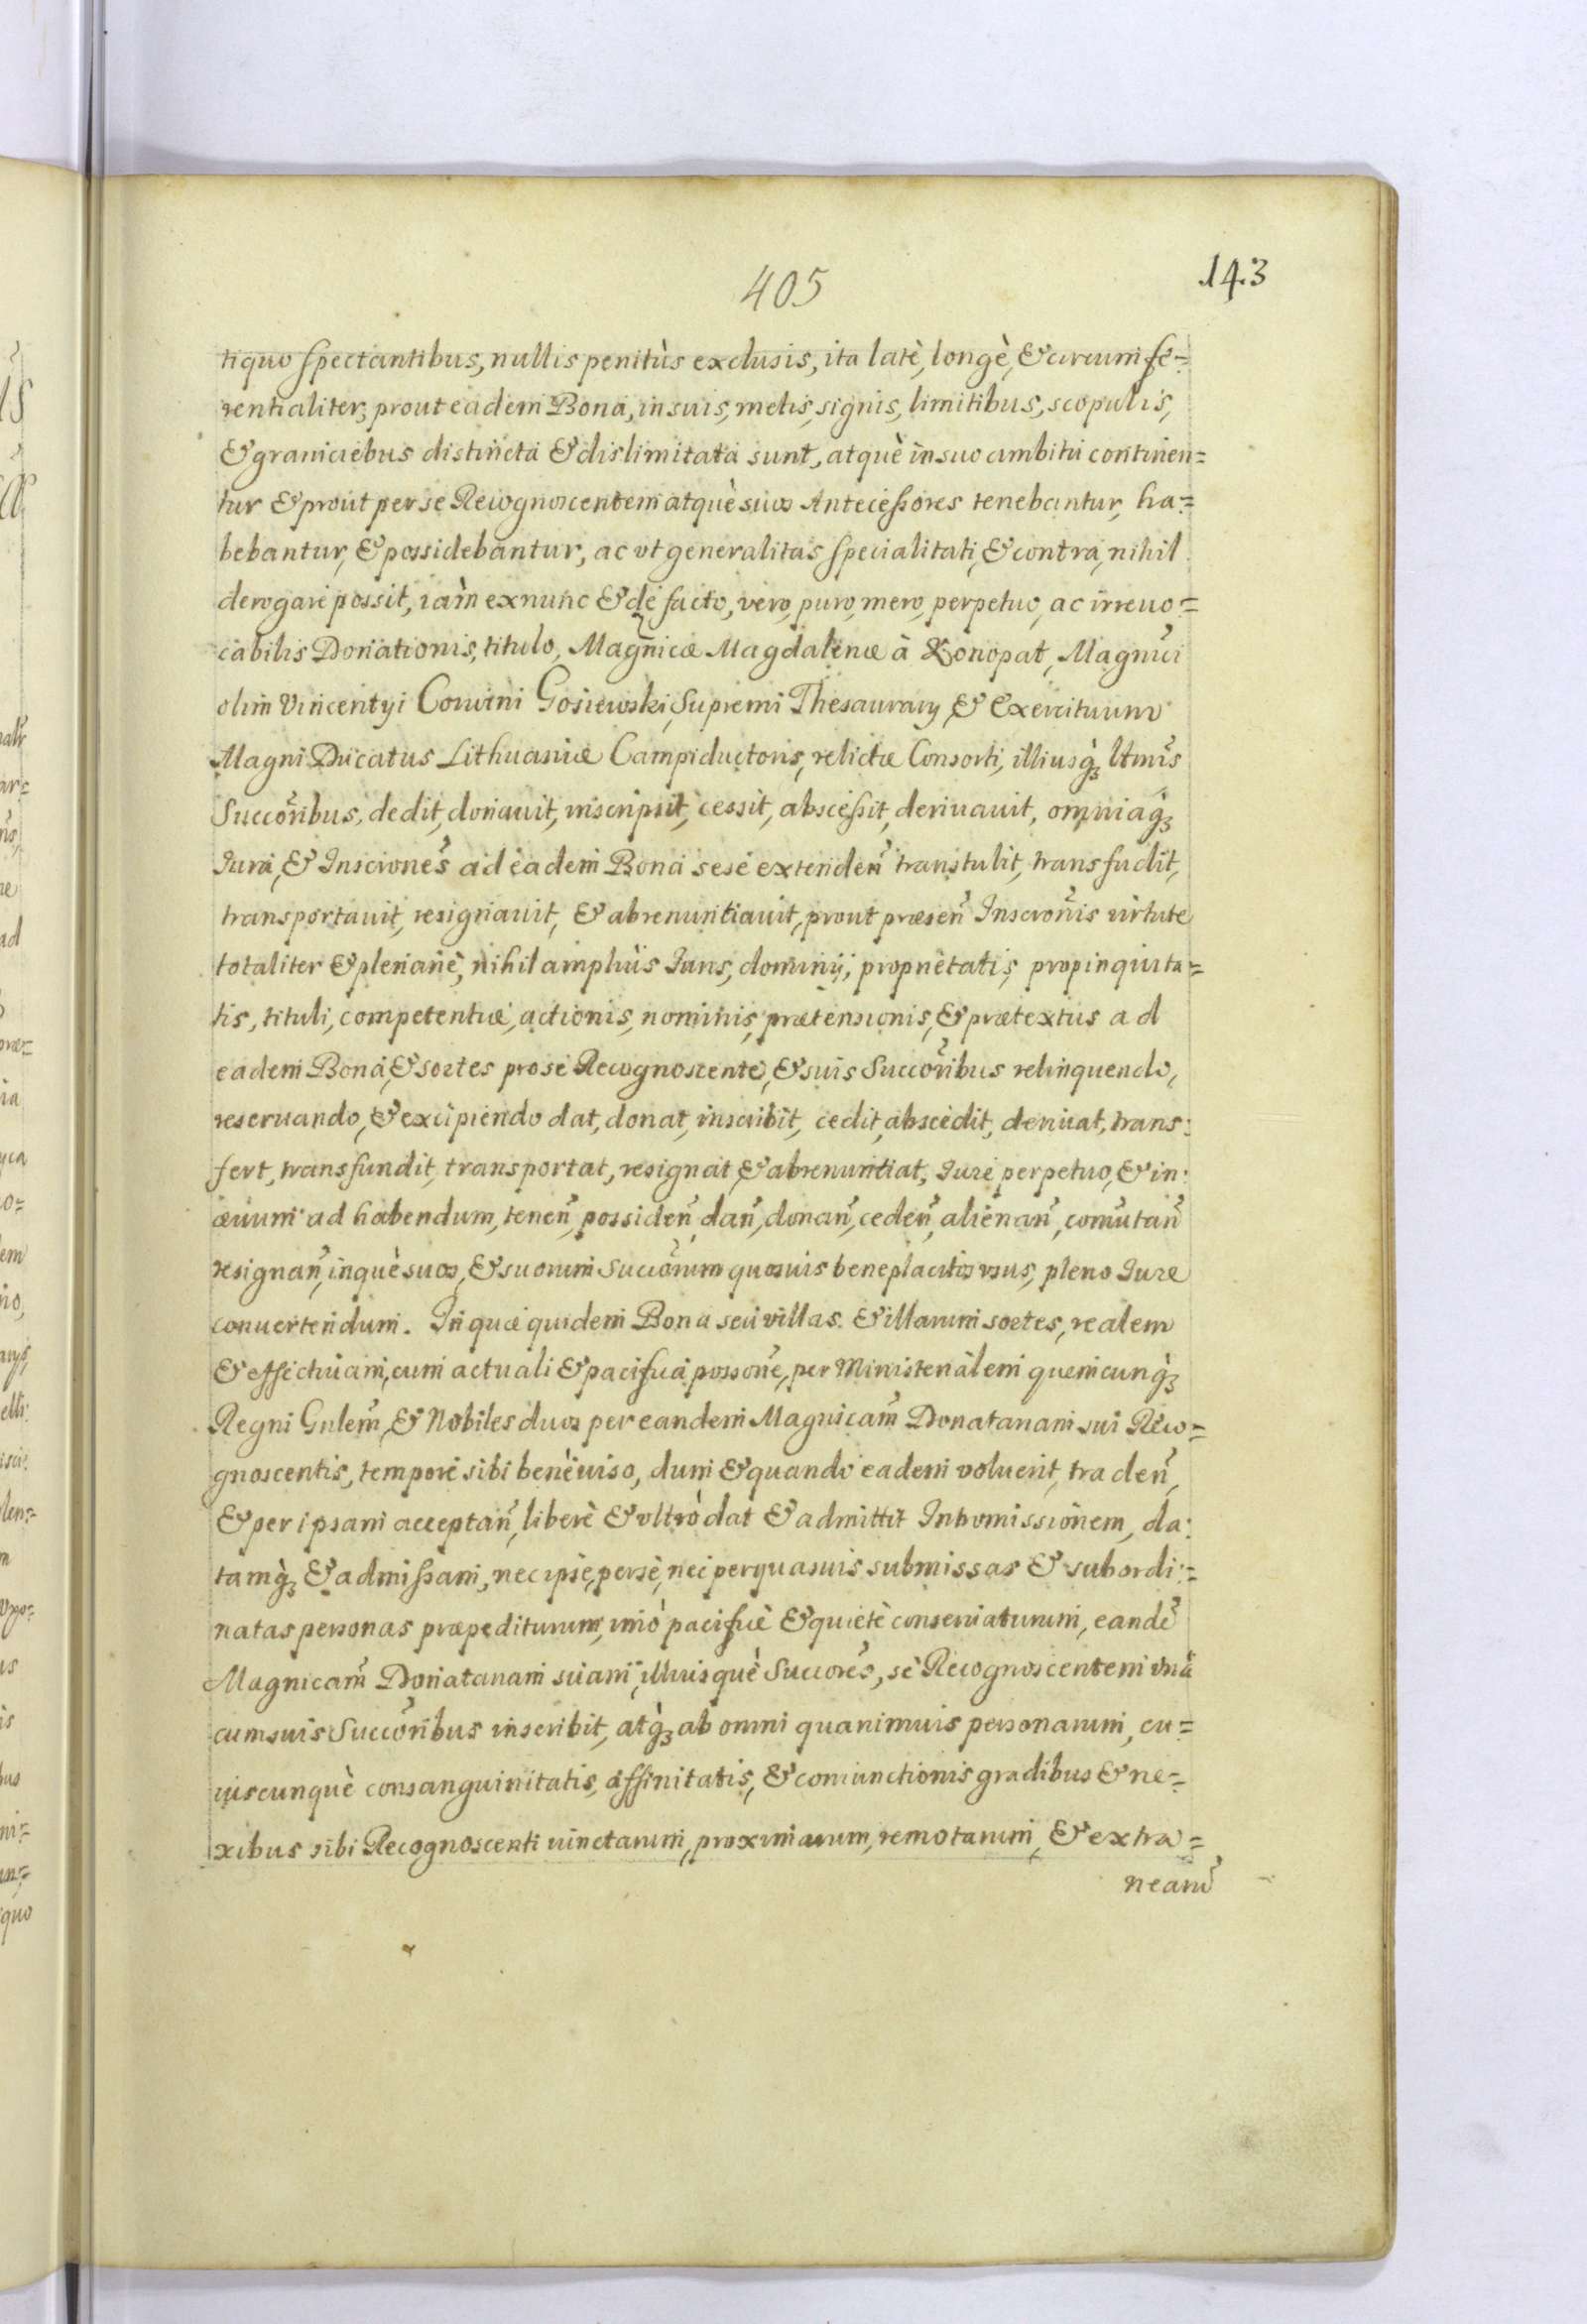 405
143
tiquo spectantibus, nullis penitùs exclusis, ita latè, longè, & circumfe=
rentialiter, prout eadem Bona, in suis, metis, signis, limitibus, scopulis,
& graniciebus distincta & dislimitata sunt, atquè in suo ambitu continen=
tur & prout per se Recognoscentem atquè suos Antecessores tenebantur, ha=
bebantur, & possidebantur, ac vt generalitas specialitati, & contra, nihil
derogare possit, iàm ex nunc & de facto, vero, puro, mero, perpetuo, ac irreuo=
cabilis Donationis, titulo, Magnicæ Magdalenæ à Konopat, Magnići
olim Vincentyi Coruini Gosiewski, Supremi Thesaurary & Exercituum
Magni Ducatus Lithuaniæ Campiductoris, relictæ Consorti, illiusq̀ꝫ ltmis̃
Succõribus, dedit, donauit, inscripsit, cessit, abscessit, deriuauit, omniaq̀ꝫ
Iura, & Inscrones̃ ad eadem Bona sese extendeñ transtulit, transfudit,
transportauit, resignauit, & abrenuntiauit, prout præseñ Inscrõnis virtute
totaliter & plenariè, nihil ampliùs Iuris, dominij, proprietatis, propinquita=
tis, tituli, competentiæ, actionis, nominis, prætensionis, & prætextus ad
eadem Bona, & sortes pro se Recognoscente, & suis Succõribus relinquendo,
reseruando, & excipiendo dat, donat, inscribit, cedit, abscedit, deriuat, trans:
fert, transfundit, transportat, resignat & abrenuntiat, Iure perpetuo, & in:
æuum ad habendum, teneñ, possideñ, dañ, donañ, cedeñ, alienañ, com̃utañ
resignañ, inquè suos, & suorum Succõrum quosuis beneplacitos vsus, pleno Iure
conuertendum. In quæ quidem Bona seu villas. & illarum sortes, realem
& effectiuam, cum actuali & pacifica possoñe, per Ministerialem quemcunq̀ꝫ
Regni Gnlem̃, & Nobiles duos per eandem Magnicam̃ Donatariam sui Reco=
gnoscentis, tempore sibi benèuiso, dum & quando eadem voluerit, tradeñ,
& per ipsam acceptañ, liberè & vltrò dat & admittit Intromissionem, da:
tamq̀ꝫ & admissam, nec ipse, per se, nec per quasuis submissas & subordi:=
natas personas præpediturum, imò pacificè & quietè conseruaturum, eandẽ
Magnicam̃ Donatariam suam, illiusquè Succores̃, se Recognoscentem vnà
cum suis Succõribus inscribit, atq̀ꝫ ab omni quarumuis personarum, cu=
iuscunquè consanguinitatis, affinitatis, & coniunctionis gradibus & ne=
xibus sibi Recognoscenti uinctarum, proximarum, remotarum, & extra=
nearũ